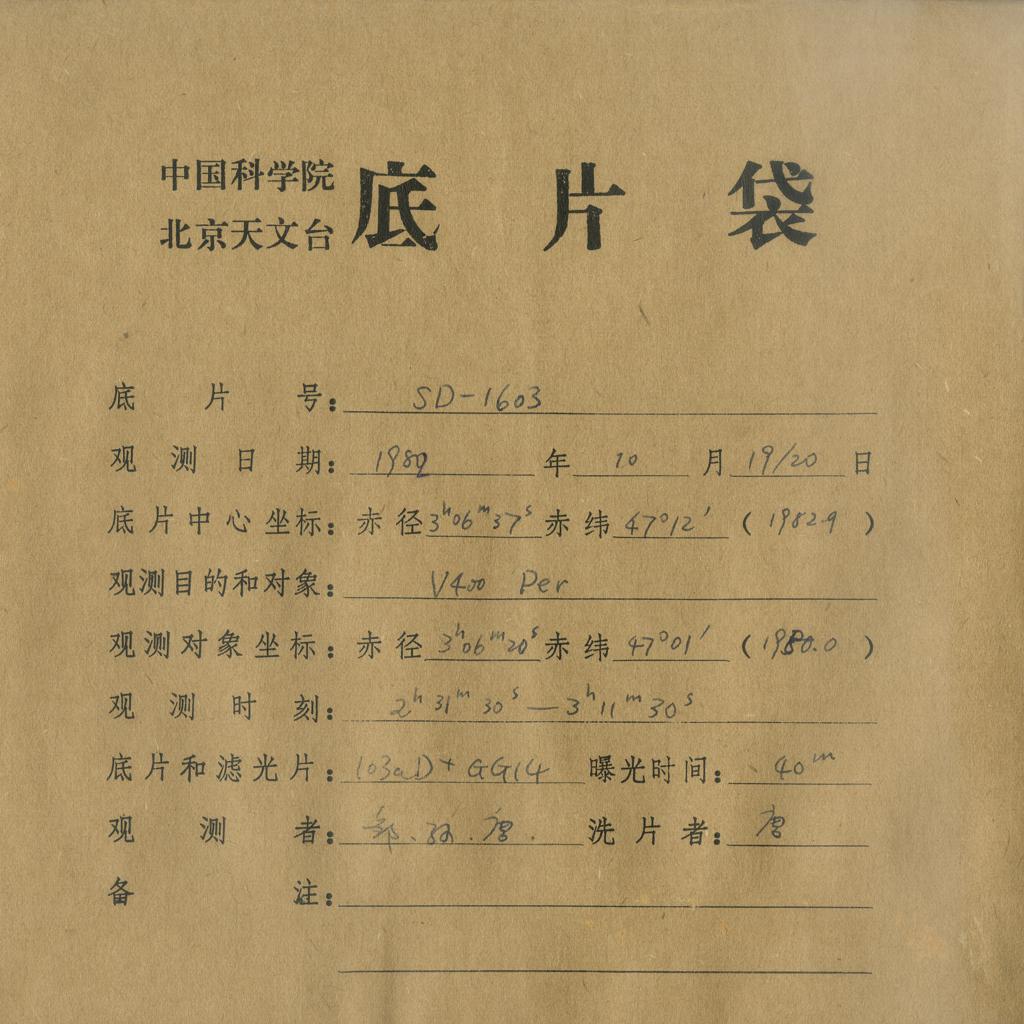 中国科学院
北京天文台
底片袋
底片号: SD-1603
观测日期: 1982年10月19/20日
底片中心坐标: 赤径3ʰ06ᵐ37ˢ赤纬47°12′(1982.9)
观测目的和对象: V400 Per
观测对象坐标: 赤径3ʰ06ᵐ20ˢ赤纬47°01′(1980.0)
观测时刻: 2ʰ31ᵐ30ˢ—3ʰ11ᵐ30ˢ
底片和滤光片: 103aD+GG14 曝光时间: 40ᵐ
观测者: 邹.孙.唐. 洗片者: 唐
备注: